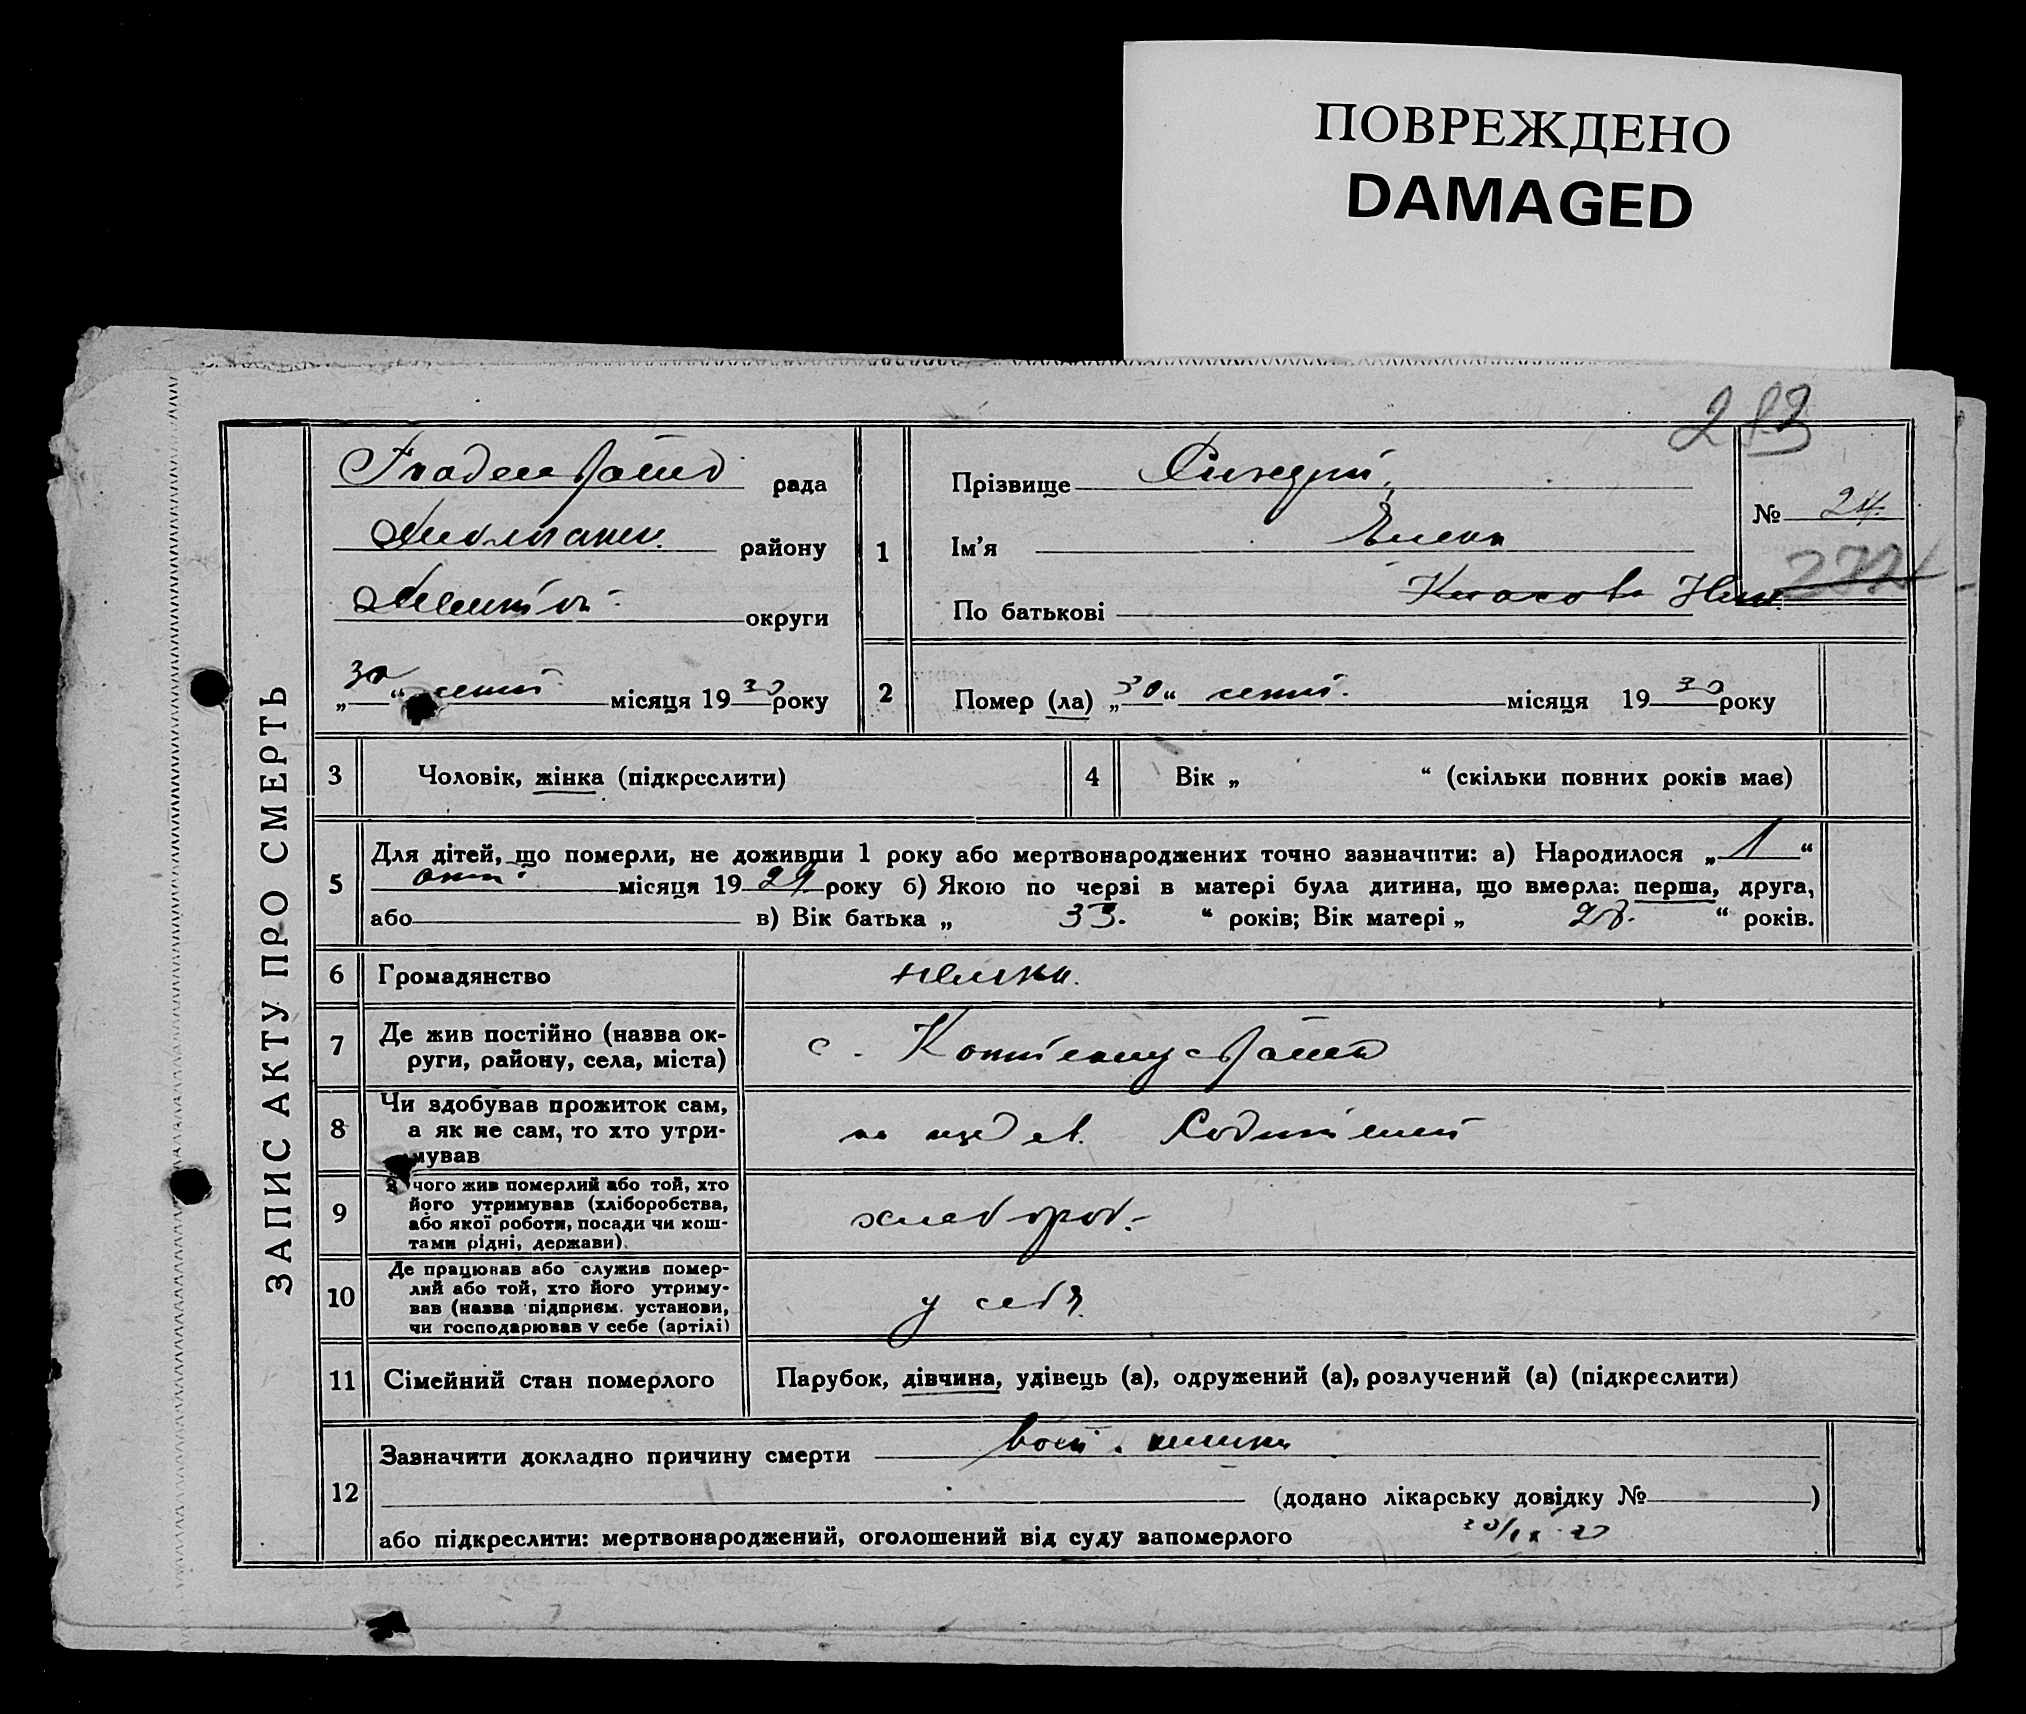 ПОВРЕЖДЕНО
DAMAGED
ЗАПИС АКТУ ПРО СМЕРТЬ
рада
району
округи
„30“ сент. місяця 1930 року
1
Прізвище
Ім'я Елена
По батькові
№ 24.
2
Помер (ла) „30“ сент. місяця 1930 року
3
Чоловік, жінка (підкреслити)
4
Вік „ “ (скільки повних років має)
5
Для дітей, що померли, не доживши 1 року або мертвонароджених точно зазначити: а) Народилося „1“
окт. місяця 1929 року б) Якою по черзі в матері була дитина, що вмерла: перша, друга,
або в) Вік батька „ 33. “ років; Вік матері „ 28. “ років.
6
Громадянство
немка.
7
Де жив постійно (назва ок-
руги, району, села, міста)
с.
8
Чи здобував прожиток сам,
а як не сам, то хто утри-
мував
на ижд ев. Родителей
9
З чого жив померлий або той, хто
його утримував (хліборобства,
або якої роботи, посади чи кош-
тами рідні, держави).
хлебороб.
10
Де працював або служив помер-
лий або той, хто його утриму-
вав (назва підприєм. установи,
чи господарював у себе (артілі)
у себя.
11
Сімейний стан померлого
Парубок, дівчина, удівець (а), одружений (а), розлучений (а) (підкреслити)
12
Зазначити докладно причину смерти
(додано лікарську довідку № )
або підкреслити: мертвонароджений, оголошений від суду запомерлого